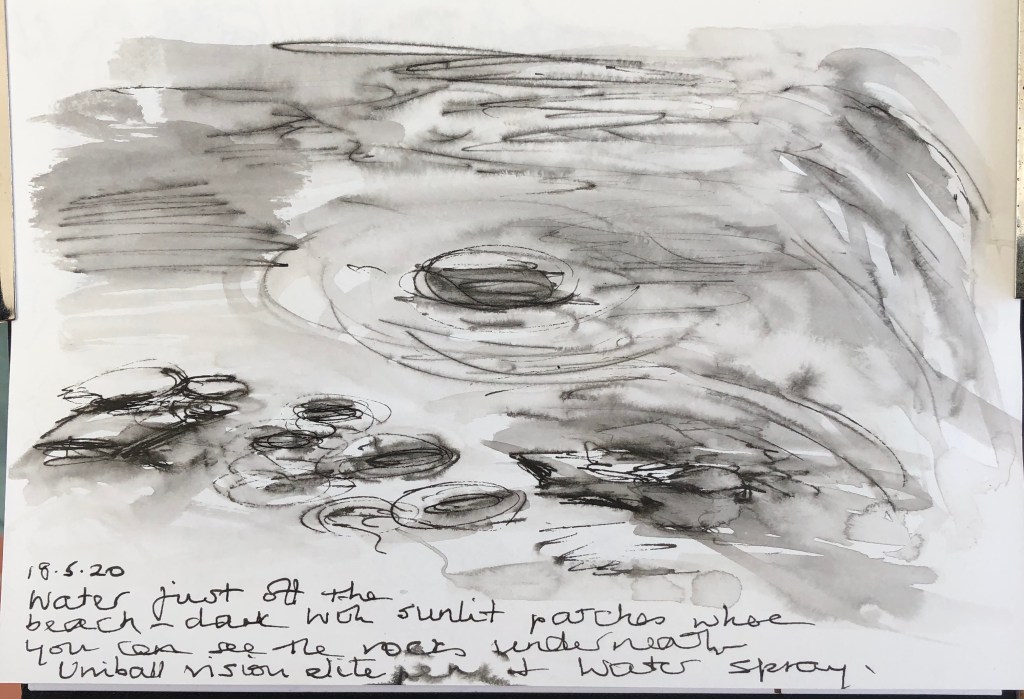 18.5.20
Water just off the
beach - dark with sunlit patches where
you can see the rocks underneath
Uniball vision elite pen & water spray.